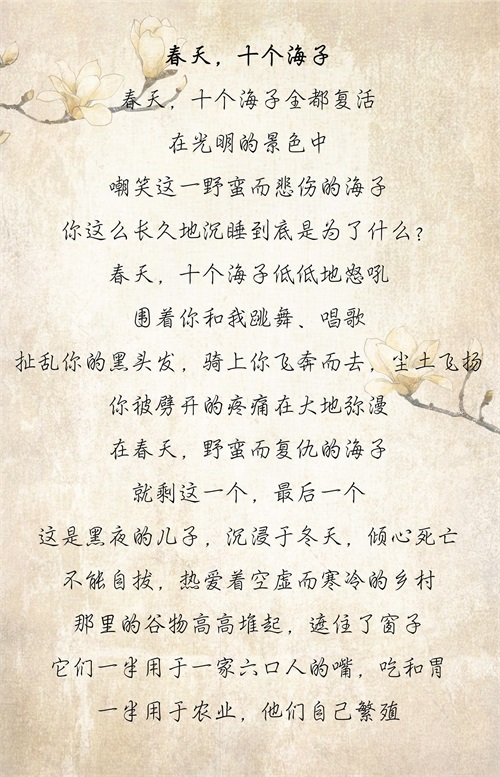 春天，十个海子
春天，十个海子全都复活
在光明的景色中
嘲笑这一野蛮而悲伤的海子
你这么长久地沉睡到底是为了什么？
春天，十个海子低低地怒吼
围着你和我跳舞、唱歌
扯乱你的黑头发，骑上你飞奔而去，尘土飞扬
你被劈开的疼痛在大地弥漫
在春天，野蛮而复仇的海子
就剩这一个，最后一个
这是黑夜的儿子，沉浸于冬天，倾心死亡
不能自拔，热爱着空虚而寒冷的乡村
那里的谷物高高堆起，遮住了窗子
它们一半用于一家六口人的嘴，吃和胃
一半用于农业，他们自己繁殖